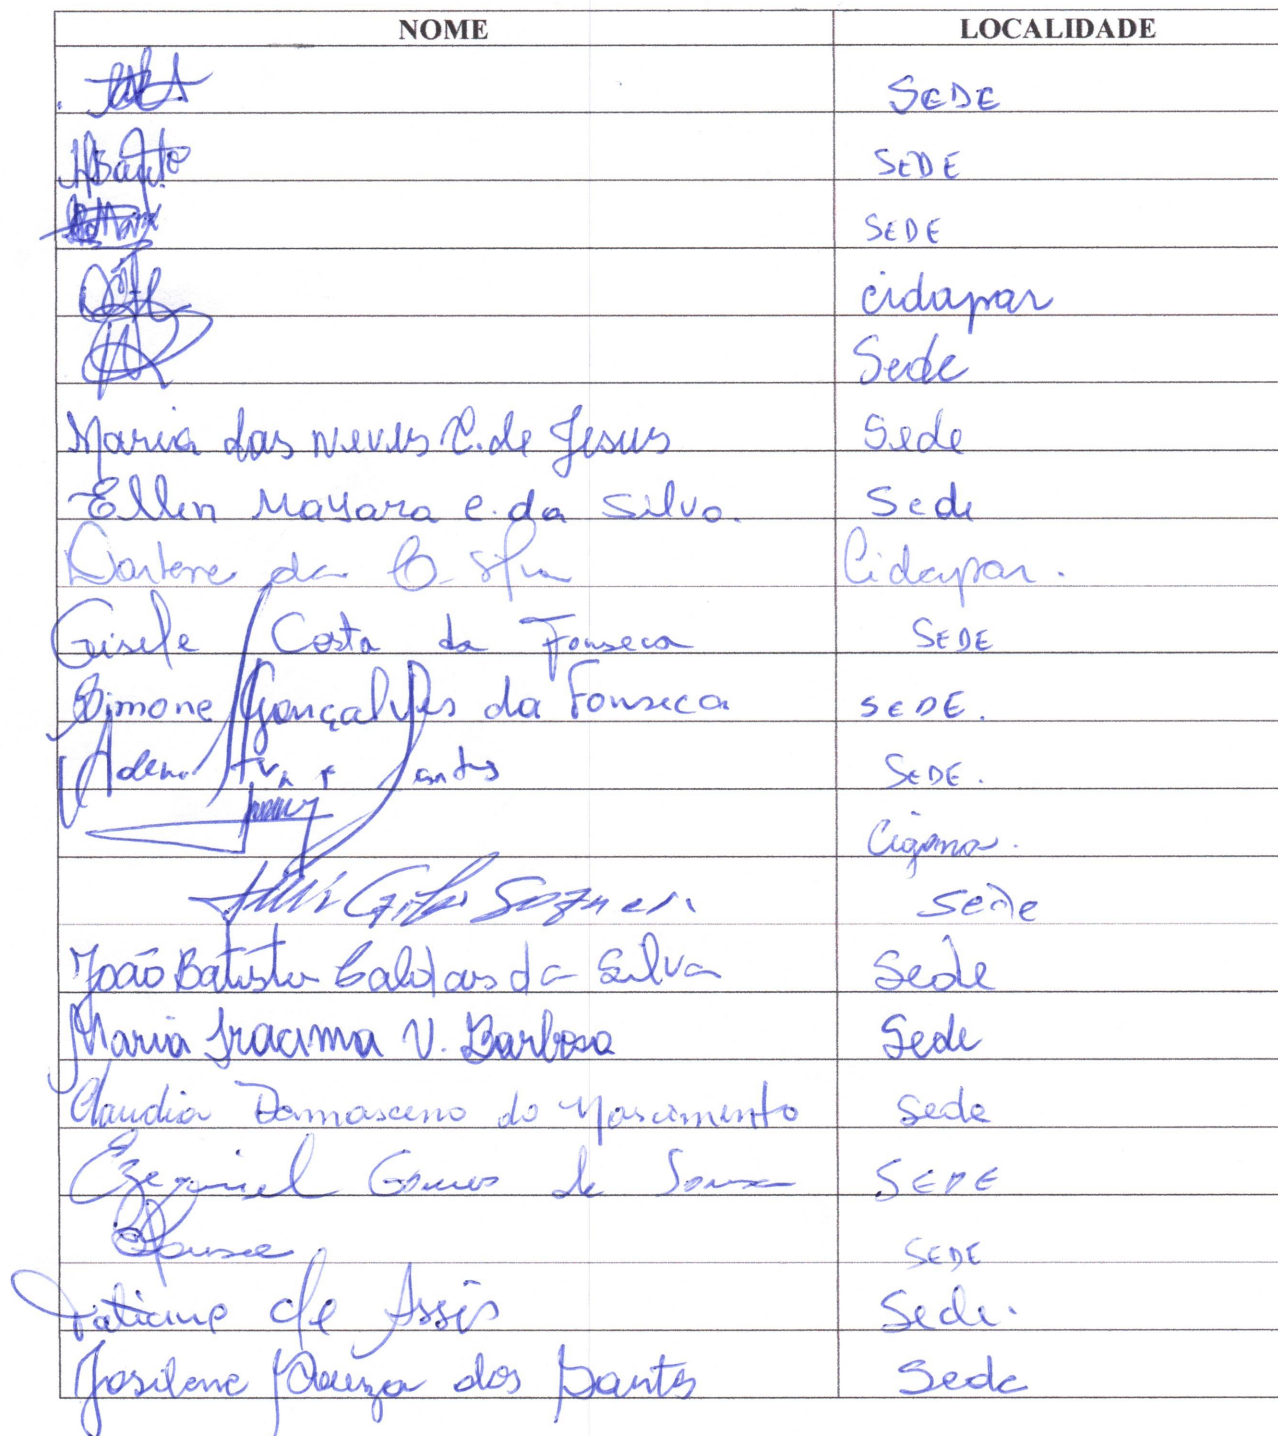 NOME LOCALIDADE
SEDE
SEDE
SEDE
cidapar
Sede
Maria das Neves C. de Jesus Sede
Ellen Mayara C. da Silva. Sede
Darlene da C. Silva Cidapar.
Gisele Costa da Fonseca SEDE
Simone Gonçalves da Fonseca SEDE.
Santos SEDE.
Cigana.
Sede
João Batista Caldas da Silva Sede
Maria Iracema V. Barbosa Sede
Claudia Damasceno do Nascimento Sede
Ezequiel Gomes de Sousa SEDE
SEDE
Tatiane de Assis Sede.
Josilene Souza dos Santos Sede